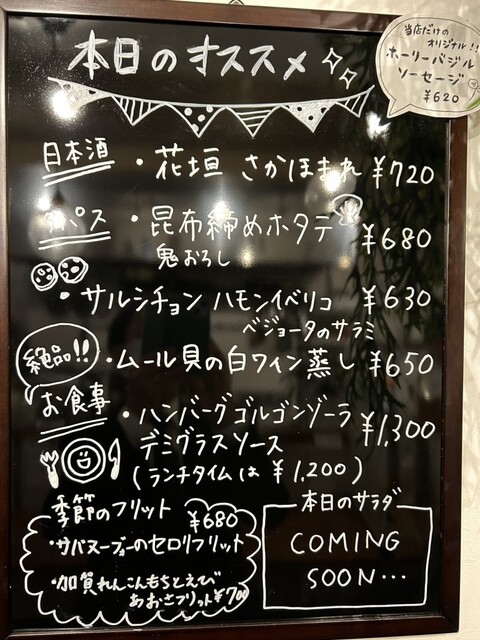 本日のオススメ
当店だけの
オリジナル!!
ホーリーバジル
ソーセージ
¥620
日本酒
・花垣 さかほまれ ¥720
タパス
・昆布締めホタテ ¥680
鬼おろし
・サルシチョン ハモンイベリコ ¥630
ベジョータのサラミ
絶品!!
・ムール貝の白ワイン蒸し ¥650
お食事
・ハンバーグゴルゴンゾーラ ¥1,300
デミグラスソース
(ランチタイムは ¥1,200)
季節のフリット
¥680
・サバヌーヴォーのセロリフリット
・加賀れんこんもちとえび
あおさフリット¥700
本日のサラダ
COMING
SOON…